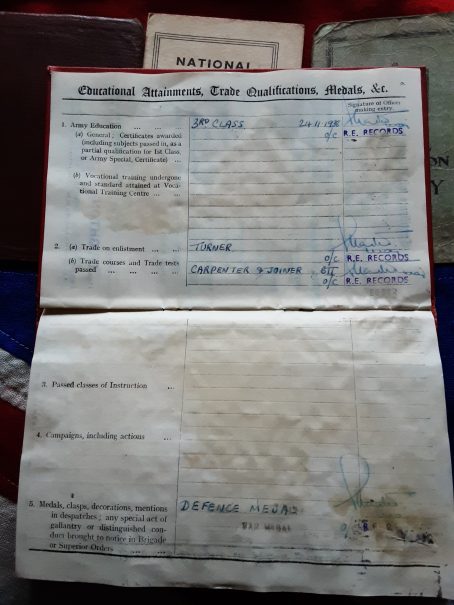 NATIONAL
Educational Attainments, Trade Qualifications, Medals, &c.
Signature of Officer
making entry
1. Army Education ... ...
3RD CLASS
(a) General; Certificates awarded
o/c R.E. RECORDS
(including subjects passed in, as a
partial qualification for 1st Class,
or Army Special, Certificate) ...
(b) Vocational training undergone
and standard attained at Voca-
tional Training Centre ... ...
2. (a) Trade on enlistment ... ...
TURNER
o/c R.E. RECORDS
(b) Trade courses and Trade tests
passed ... ... ... ...
CARPENTER & JOINER
o/c R.E. RECORDS
3. Passed classes of Instruction ...
4. Campaigns, including actions ...
5. Medals, clasps, decorations, mentions
in despatches; any special act of
gallantry or distinguished con-
duct brought to notice in Brigade
or Superior Orders ... ...
DEFENCE MEDAL
WAR MEDAL